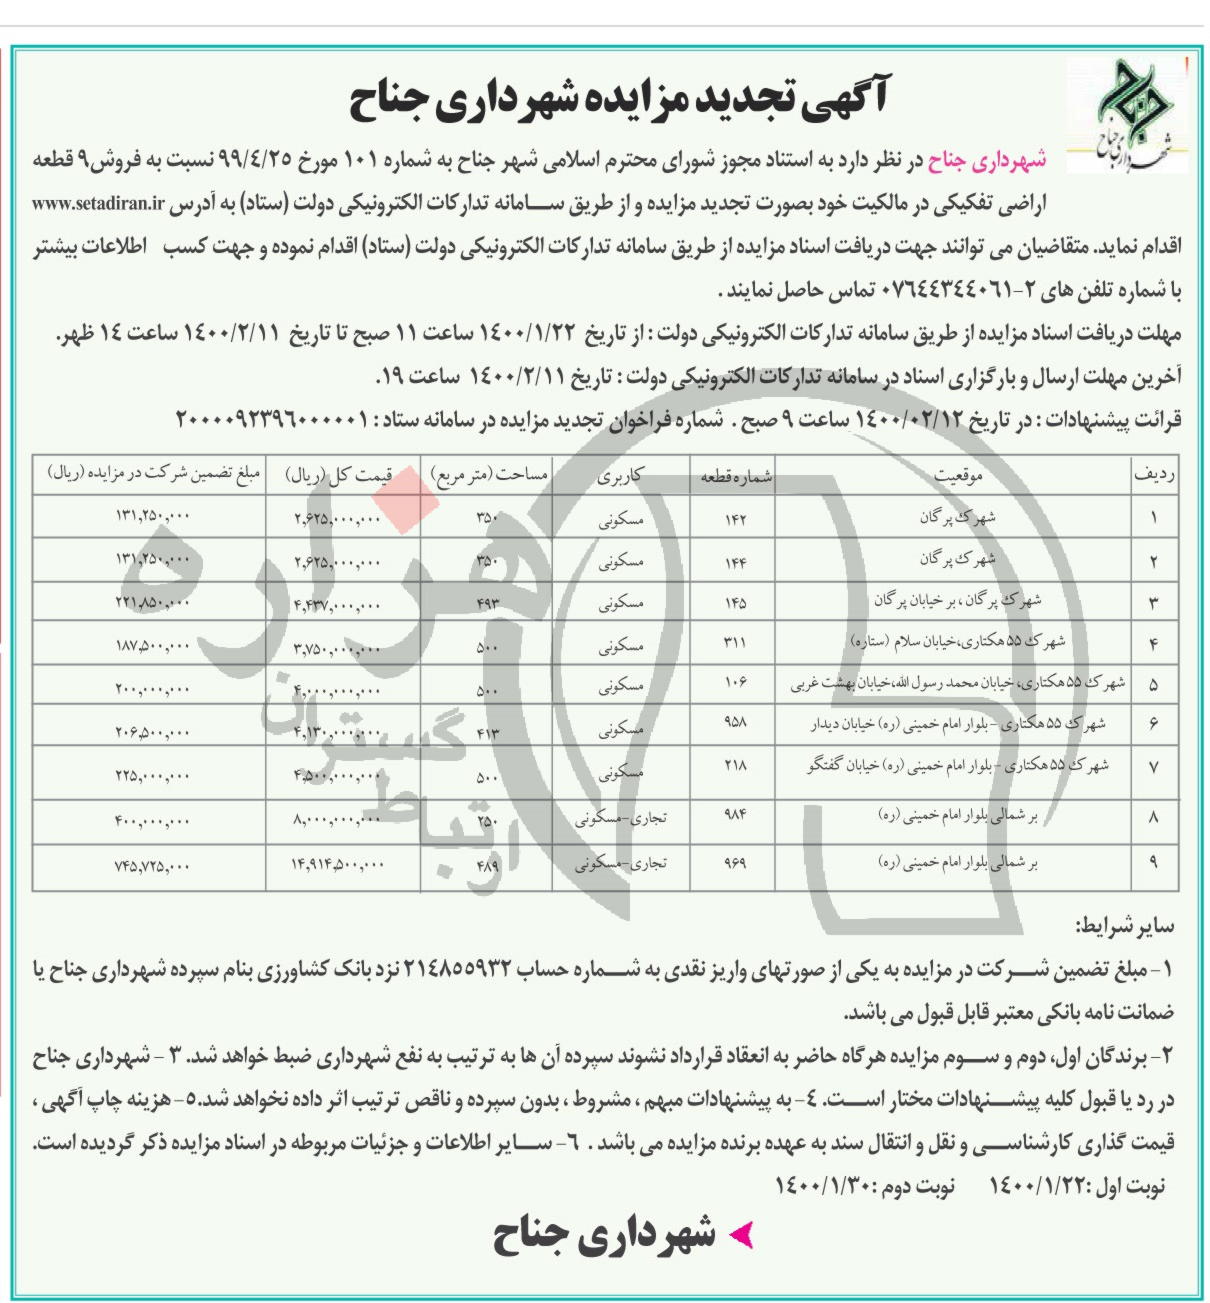 آگهی تجدید مزایده شهرداری جناح
شهرداری جناح
شهرداری جناح در نظر دارد به استناد مجوز شورای محترم اسلامی شهر جناح به شماره ۱۰۱ مورخ ۹۹/٤/۲٥ نسبت به فروش۹ قطعه
اراضی تفکیکی در مالکیت خود بصورت تجدید مزایده و از طریق ســامانه تدارکات الکترونیکی دولت (ستاد) به آدرس www.setadiran.ir
اقدام نماید. متقاضیان می توانند جهت دریافت اسناد مزایده از طریق سامانه تدارکات الکترونیکی دولت (ستاد) اقدام نموده و جهت کسب اطلاعات بیشتر
با شماره تلفن های ۲-۰۷٦٤٤۳٤٤۰٦۱ تماس حاصل نمایند .
مهلت دریافت اسناد مزایده از طریق سامانه تدارکات الکترونیکی دولت : از تاریخ ۱٤۰۰/۱/۲۲ ساعت ۱۱ صبح تا تاریخ ۱٤۰۰/۲/۱۱ ساعت ۱٤ ظهر.
آخرین مهلت ارسال و بارگزاری اسناد در سامانه تدارکات الکترونیکی دولت : تاریخ ۱٤۰۰/۲/۱۱ ساعت ۱۹.
قرائت پیشنهادات : در تاریخ ۱٤۰۰/۰۲/۱۲ ساعت ۹ صبح . شماره فراخوان تجدید مزایده در سامانه ستاد : ۲۰۰۰۰۹۲۳۹٦۰۰۰۰۰۱
ردیف موقعیت شماره قطعه کاربری مساحت (متر مربع) قیمت کل (ریال) مبلغ تضمین شرکت در مزایده (ریال)
۱ شهرک پرگان ۱۴۲ مسکونی ۳۵۰ ۲,۶۲۵,۰۰۰,۰۰۰ ۱۳۱,۲۵۰,۰۰۰
۲ شهرک پرگان ۱۴۴ مسکونی ۳۵۰ ۲,۶۲۵,۰۰۰,۰۰۰ ۱۳۱,۲۵۰,۰۰۰
۳ شهرک پرگان ، بر خیابان پرگان ۱۴۵ مسکونی ۴۹۳ ۴,۴۳۷,۰۰۰,۰۰۰ ۲۲۱,۸۵۰,۰۰۰
۴ شهرک ۵۵ هکتاری،خیابان سلام (ستاره) ۳۱۱ مسکونی ۵۰۰ ۳,۷۵۰,۰۰۰,۰۰۰ ۱۸۷,۵۰۰,۰۰۰
۵ شهرک ۵۵ هکتاری، خیابان محمد رسول الله،خیابان بهشت غربی ۱۰۶ مسکونی ۵۰۰ ۴,۰۰۰,۰۰۰,۰۰۰ ۲۰۰,۰۰۰,۰۰۰
۶ شهرک ۵۵ هکتاری -بلوار امام خمینی (ره) خیابان دیدار ۹۵۸ مسکونی ۴۱۳ ۴,۱۳۰,۰۰۰,۰۰۰ ۲۰۶,۵۰۰,۰۰۰
۷ شهرک ۵۵ هکتاری -بلوار امام خمینی (ره) خیابان گفتگو ۲۱۸ مسکونی ۵۰۰ ۴,۵۰۰,۰۰۰,۰۰۰ ۲۲۵,۰۰۰,۰۰۰
۸ بر شمالی بلوار امام خمینی (ره) ۹۸۴ تجاری-مسکونی ۲۵۰ ۸,۰۰۰,۰۰۰,۰۰۰ ۴۰۰,۰۰۰,۰۰۰
۹ بر شمالی بلوار امام خمینی (ره) ۹۶۹ تجاری-مسکونی ۴۸۹ ۱۴,۹۱۴,۵۰۰,۰۰۰ ۷۴۵,۷۲۵,۰۰۰
هزاره
گستران
ارتباط
سایر شرایط:
۱- مبلغ تضمین شــرکت در مزایده به یکی از صورتهای واریز نقدی به شــماره حساب ۲۱٤۸٥٥۹۳۲ نزد بانک کشاورزی بنام سپرده شهرداری جناح یا
ضمانت نامه بانکی معتبر قابل قبول می باشد.
۲- برندگان اول، دوم و ســوم مزایده هرگاه حاضر به انعقاد قرارداد نشوند سپرده آن ها به ترتیب به نفع شهرداری ضبط خواهد شد. ۳ - شهرداری جناح
در رد یا قبول کلیه پیشــنهادات مختار اســت. ٤- به پیشنهادات مبهم ، مشروط ، بدون سپرده و ناقص ترتیب اثر داده نخواهد شد.٥- هزینه چاپ آگهی ،
قیمت گذاری کارشناســی و نقل و انتقال سند به عهده برنده مزایده می باشد . ٦- ســایر اطلاعات و جزئیات مربوطه در اسناد مزایده ذکر گردیده است.
نوبت اول :۱٤۰۰/۱/۲۲ نوبت دوم :۱٤۰۰/۱/۳۰
شهرداری جناح